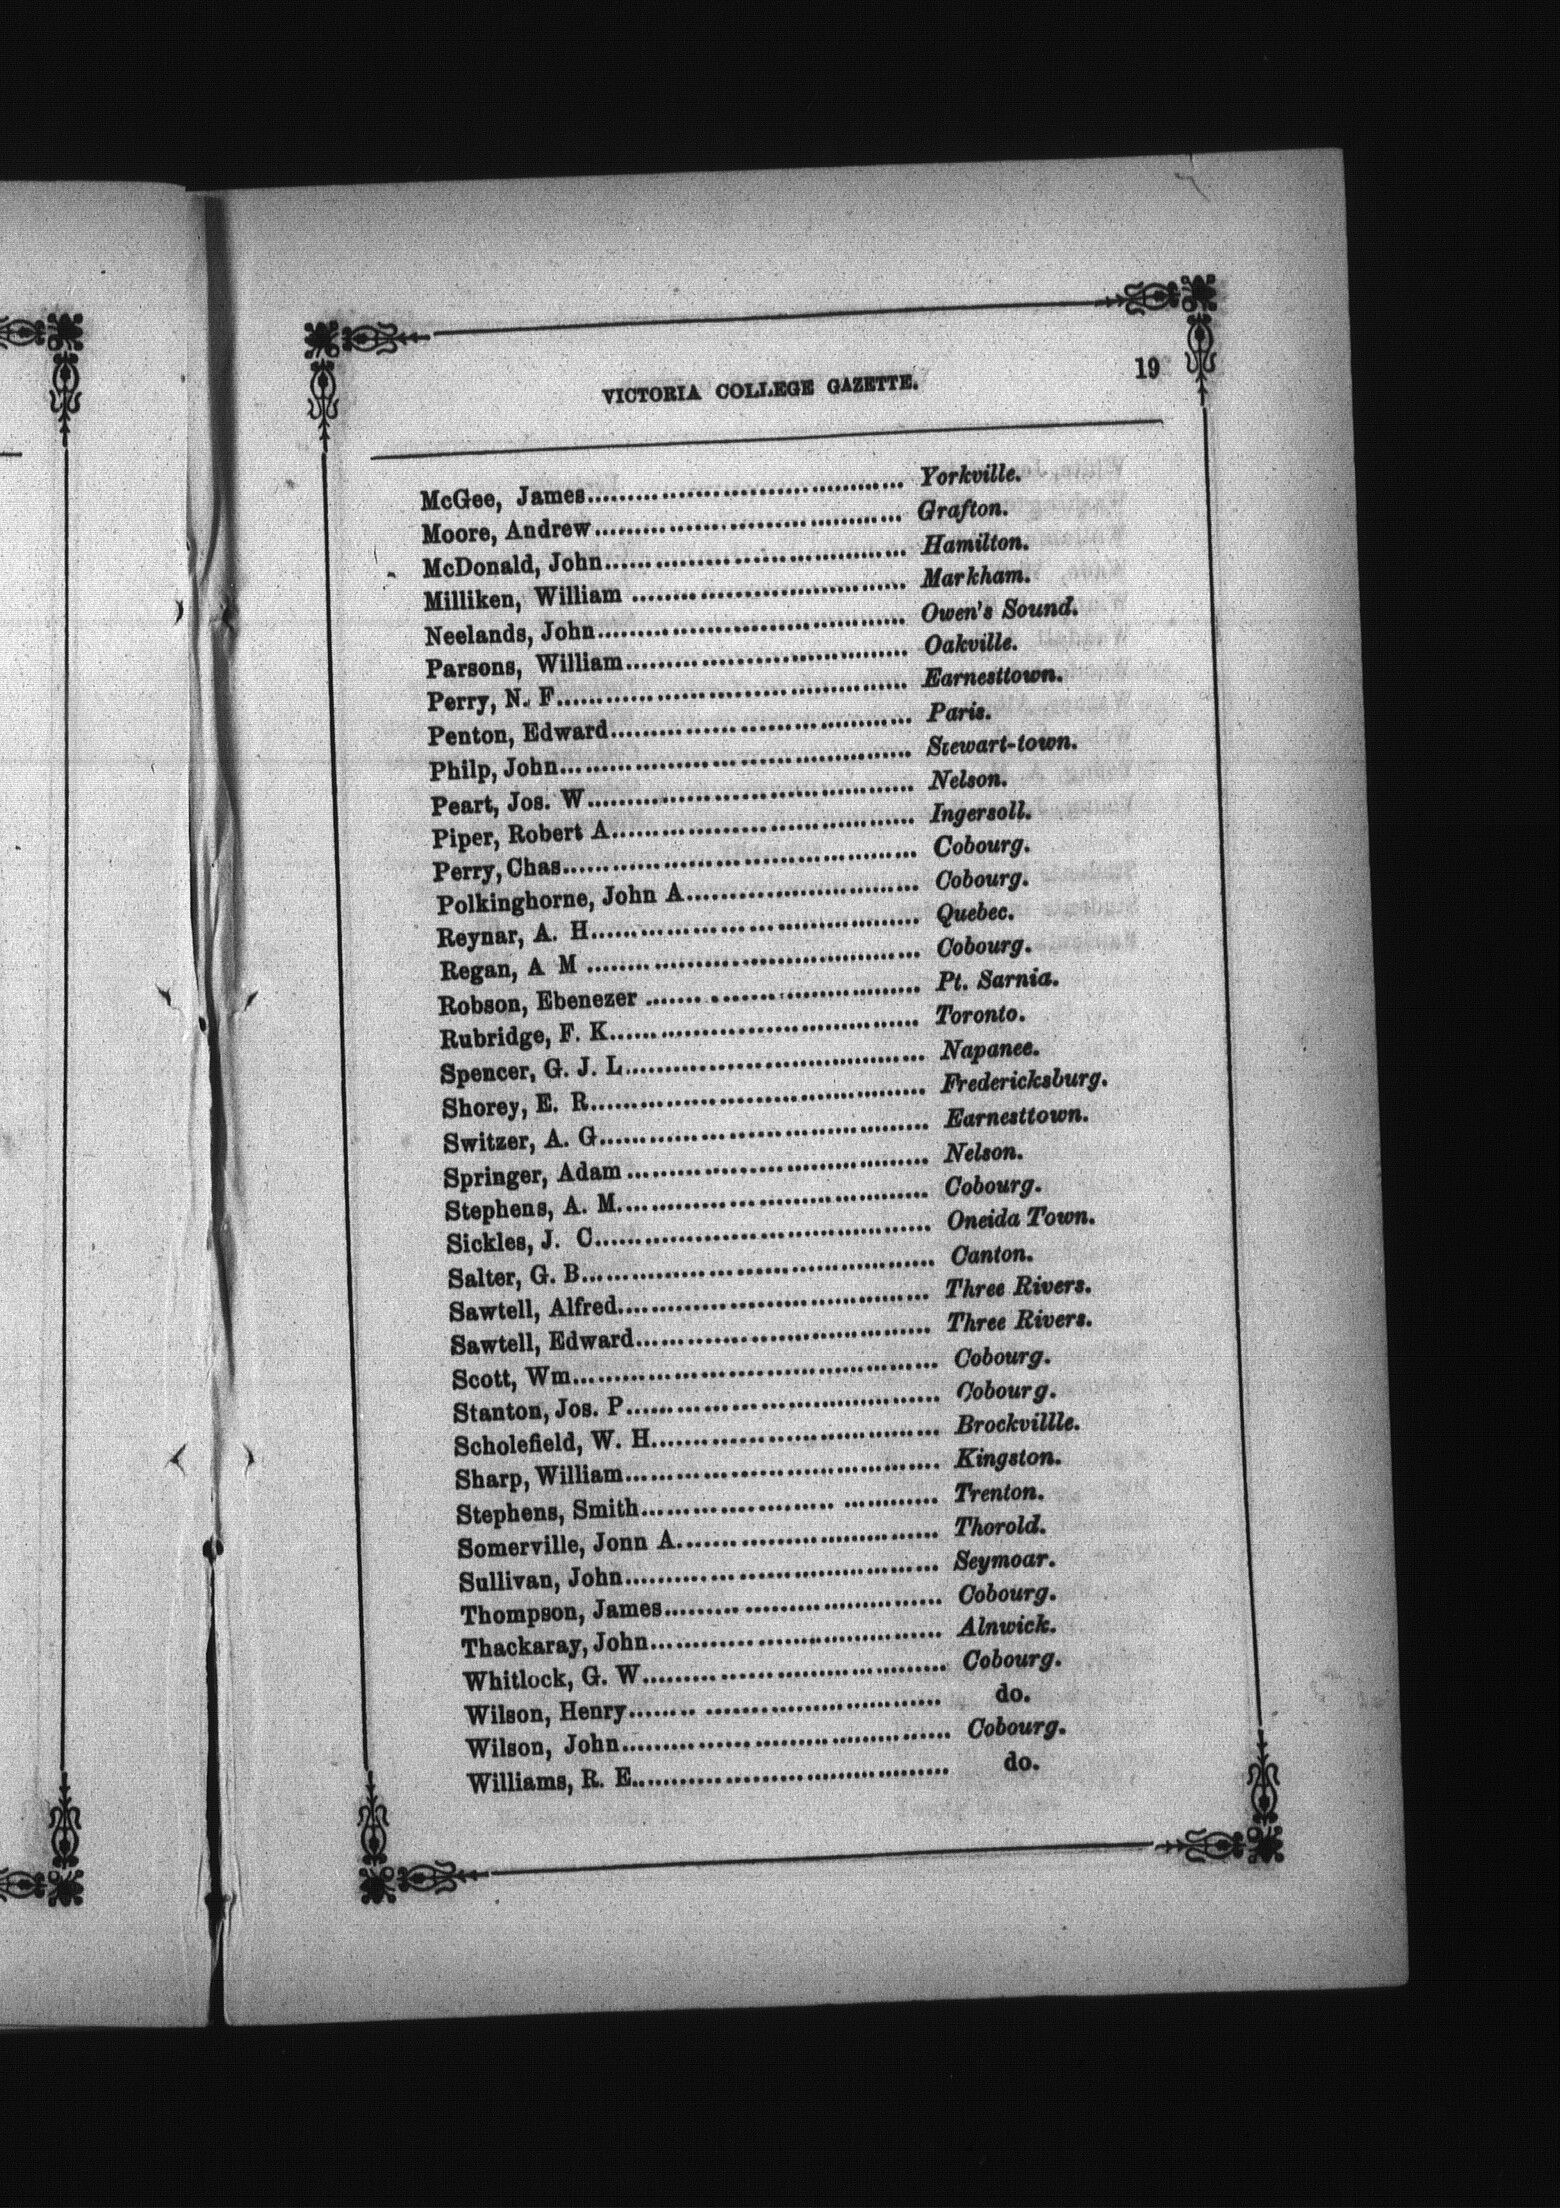 VICTORIA COLLEGE GAZETTE. 19
McGee, James........................................ Yorkville.
Moore, Andrew........................................ Grafton.
McDonald, John........................................ Hamilton.
Milliken, William ........................................ Markham.
Neelands, John........................................ Owen's Sound.
Parsons, William........................................ Oakville.
Perry, N. F........................................ Earnesttown.
Penton, Edward........................................ Paris.
Philp, John........................................ Stewart-town.
Peart, Jos. W........................................ Nelson.
Piper, Robert A........................................ Ingersoll.
Perry, Chas........................................ Cobourg.
Polkinghorne, John A........................................ Cobourg.
Reynar, A. H........................................ Quebec.
Regan, A M ........................................ Cobourg.
Robson, Ebenezer ........................................ Pt. Sarnia.
Rubridge, F. K........................................ Toronto.
Spencer, G. J. L........................................ Napanee.
Shorey, E. R........................................ Fredericksburg.
Switzer, A. G........................................ Earnesttown.
Springer, Adam ........................................ Nelson.
Stephens, A. M........................................ Cobourg.
Sickles, J. C........................................ Oneida Town.
Salter, G. B........................................ Canton.
Sawtell, Alfred........................................ Three Rivers.
Sawtell, Edward........................................ Three Rivers.
Scott, Wm........................................ Cobourg.
Stanton, Jos. P........................................ Cobourg.
Scholefield, W. H........................................ Brockvillle.
Sharp, William........................................ Kingston.
Stephens, Smith........................................ Trenton.
Somerville, Jonn A........................................ Thorold.
Sullivan, John........................................ Seymoar.
Thompson, James........................................ Cobourg.
Thackaray, John........................................ Alnwick.
Whitlock, G. W........................................ Cobourg.
Wilson, Henry........................................ do.
Wilson, John........................................ Cobourg.
Williams, R. E........................................ do.